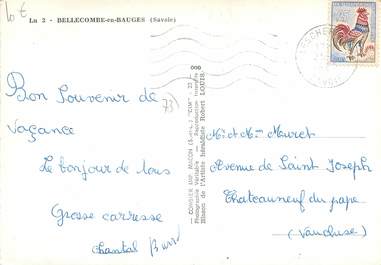 10 €
La 2 - BELLECOMBE-en-BAUGES (Savoie)
Bon Souvenir de
vaçance
Le bonjour de tous
Grosse carresse
Chantal
(73)
COMBIER IMP. MACON (S.-et-L.) "CIM"
Photographie Véritable — Reproduction interdite
Blason de l'Artiste héraldiste Robert LOUIS.
Mr et Mme Muret
Avenue de Saint Joseph
Chateauneuf du pape
(Vaucluse)